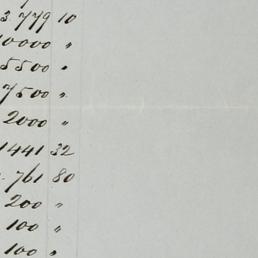 3.779 10
10000 "
5500 "
7500 "
2000 "
1441 32
.761 80
200 "
100 "
100 "